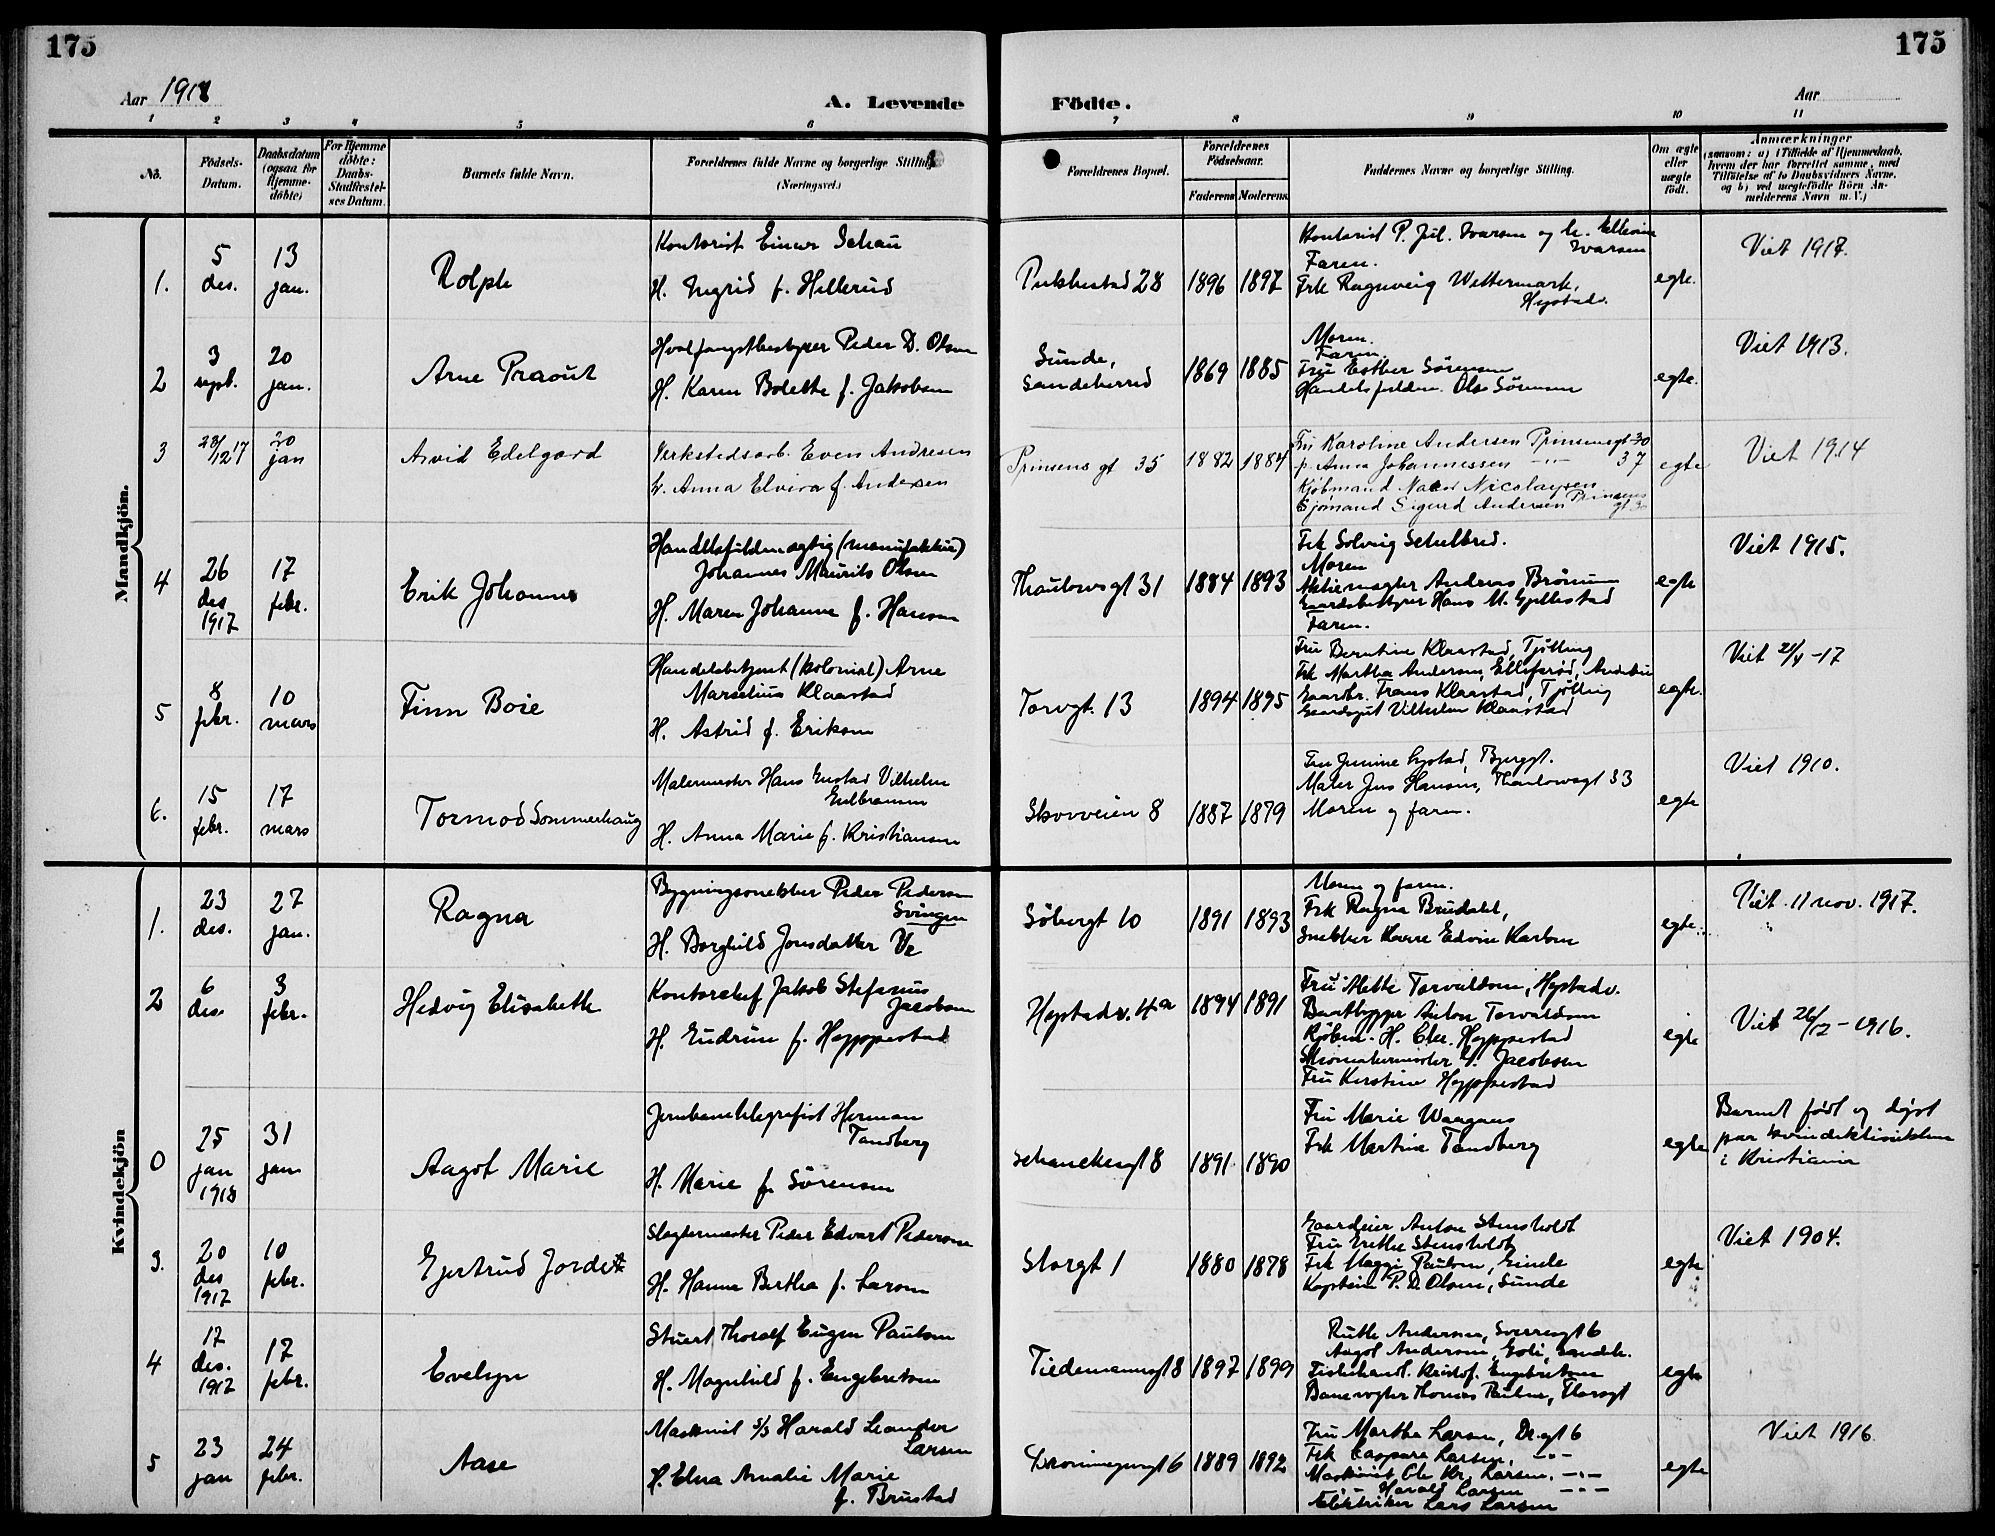 175
175
Aar 1918
A. Levende
Födte.
Aar
1 2 3 4 5 6 7 8 9 10 11
No.
Födsels-Datum.
Daabsdatum (ogsaa for Hjemme-döbte)
For Hjemme döbte: Daabs-Stadfæstel-ses Datum.
Barnets fulde Navn.
Forældrenes fulde Navne og borgerlige Stilling
(Næringsvei.)
Forældrenes Bopæl.
Forældrenes Födselsaar.
Faderens Moderens
Faddernes Navne og borgerlige Stilling.
Om ægte eller uægte födt.
Anmærkninger
(saasom: a) i Tilfælde af Hjemmedaab,
hvem der har forrettet samme, med
Tilföielse af to Daabsvidners Navne.
og b) ved uægtefödte Börn An-
melderens Navn m.V.)
Mandkjön.
1. 5 des. 13 jan. Rolph
Kontorist Einar Schau
H. Ingrid f. Hillerud
28 1896 1897
Faren.
Frk Ragnveig Wettermark,
Hystadv.
egte. Viet 1917.
2 3 sept. 20 jan. Arne Praout
Hvalfangstbestyrer Peder D. Olsen
H. Karen Bolette f. Jakobsen
Sunde,
Sandeherred
1869 1885
Moren.
Faren.
Fru Esther Sörensen
Olso Sörensen
egte. Viet 1913.
3 28/12 17 20 jan Arvid Edelgard
Verkstedsarb. Even Andresen
H. Anna Elvira f. Andersen
Prinsens gt 35 1882 1884
Fru Karoline Andersen Prinsensgt 30
F. Anna Johannessen -"- 37
Kjöbmand Nicolaysen
Sjömand Sigurd Andersen Prinsens gt 30
egte Viet 1914
4 26 des 1917 17 febr. Erik Johannes
Handelsfuldmægtig (manufaktur)
Johannes Maurits Olsen
H. Maren Johanne f. Hansen
Thaulowsgt 31 1884 1893
Frk Solveig
Moren
Andreas
Gaardsbestyrer Hans M. Gjellestad
Faren.
egte Viet 1915.
5 8 febr. 10 mars Finn Boie
Handelsbetjent (kolonial) Arne
Marselius Klaastad
H. Astrid f. Eriksen
Torvgt. 13 1894 1895
Fru Berntine Klaastad, Tjölling
Frk Martha Andersen, Andebu
Gaardbr. Frans Klaastad, Tjölling
Vilhelm Klaastad
egte. Viet 21/4-17
6. 15 febr. 17 mars Tormod Sommerhaug
Malermester Hans Vilhelm
Gulbransen
H. Anna Marie f. Kristiansen
Skovveien 8 1887 1879
Fru Bjergt.
Maler Jens Hansen, Thaulowsgt 33
Moren og faren.
egte Viet 1910.
Kvindekjön
1. 23 des. 27 jan. Ragna
Bygningssnekker Peder Pedersen
Svingen
H. Borghild Jonsdatter Ve
Söbergt 10 1891 1893
Moren og faren.
Frk Ragna Brudalel,
Snekker Edvin Karlsen
egte. Viet 11 nov. 1917.
2 6 des. 3 febr. Hedvig Elisabeth
Kontorchef Jakob Stefanus
Jacobsen
H. Gudrun f. Hoppestad
Hystadv. 4a 1894 1891
Fru Mette Torvaldsen, Hystadv.
Baatbygger Anton Torvaldsen
Kjöbm. H. Chr. Hoppestad
Skomakermester Jacobsen
Fru Kirstine Hoppestad
egte Viet 26/12-1916.
0 25 jan 1918 31 jan Aagot Marie
Jernbanetelegrafist Herman
Tandberg
H. Marie f. Sörensen
Schanchesgt 8 1891 1890
Fru Marie Waagaas
Frk Martina Tandberg
egte
Barnet födt og döpt
paa kvindeklinikken
i Kristiania
3. 20 des 1917 10 febr. Gjertrud Jordett
Slagtermester Peder Edvart Pedersen
H. Hanna Bertha f. Larsen
Storgt 1 1880 1878
Gaardeier Anton Stensholdt
Fru Grethe Stensholdt
Frk Maggi Paulsen, Sunde
Kaptein P. D. Olsen, Sunde
egte Viet 1904.
4 17 des. 1917 17 febr. Evelyn
Stuert Thoralf Eugen Paulsen
H. Magnhild f. Engebretsen
Tidemannsgt 8 1897 1899
Ruth Andersen, Sverresgt 6
Aagot Andersen,
Fiskehandl. Kristof. Engebretsen
Banevogter Thomas Paulsen,
egte
5 23 jan 24 febr. Aase
Maskinist Harald Leander
Larsen
H. Elna Amalie Marie
f. Brustad
Dronningensgt 6 1889 1892
Fru Martha Larsen, Dr.gt 6
Frk Caspara Larsen, -"-
Maskinist Ole Kr. Larsen. -"-
-"- Harald Larsen -"-
Elektriker Lars Larsen
egte Viet 1916.